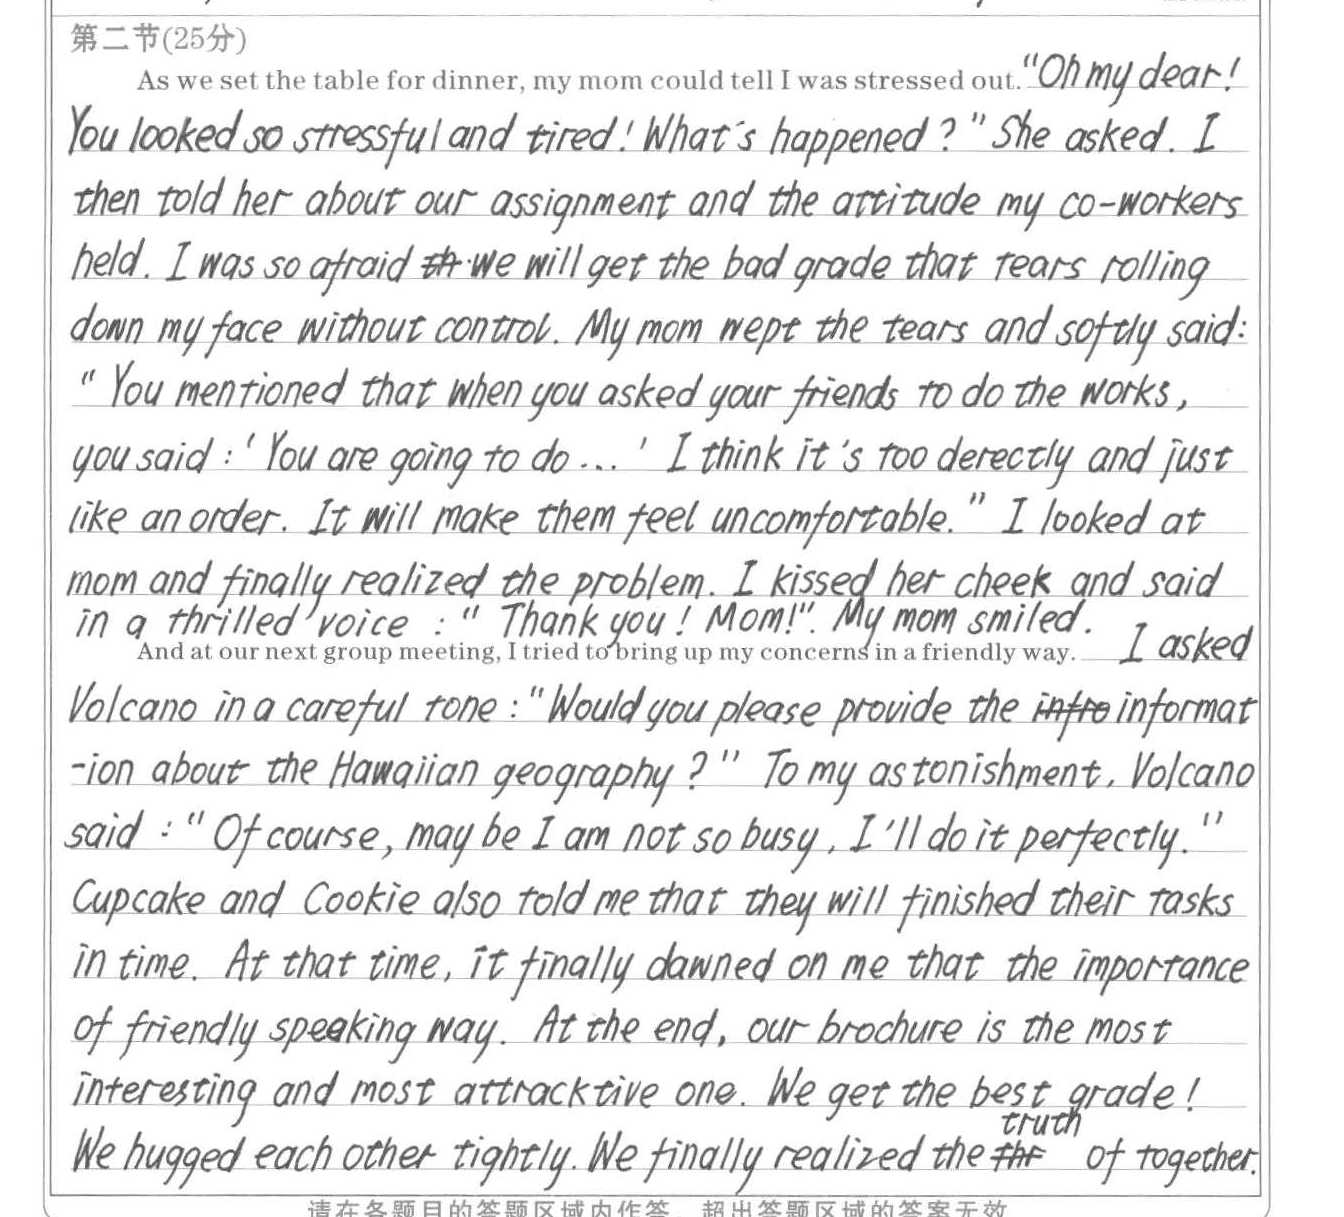 第二节(25分)
As we set the table for dinner, my mom could tell I was stressed out. "Oh my dear!
You looked so stressful and tired! What's happened?" She asked. I
then told her about our assignment and the attitude my co-workers
held. I was so afraid th we will get the bad grade that tears rolling
down my face without control. My mom wept the tears and softly said:
"You mentioned that when you asked your friends to do the works,
you said: 'You are going to do...' I think it's too derectly and just
like an order. It will make them feel uncomfortable." I looked at
mom and finally realized the problem. I kissed her cheek and said
in a thrilled voice: "Thank you! Mom!". My mom smiled.
And at our next group meeting, I tried to bring up my concerns in a friendly way. I asked
Volcano in a careful tone: "Would you please provide the infro informat
-ion about the Hawaiian geography?" To my astonishment, Volcano
said: "Of course, may be I am not so busy, I'll do it perfectly."
Cupcake and Cookie also told me that they will finished their tasks
in time. At that time, it finally dawned on me that the importance
of friendly speaking way. At the end, our brochure is the most
interesting and most attracktive one. We get the best grade!
truth
We hugged each other tightly. We finally realized the thr of together.
请在各题目的答题区域内作答，超出答题区域的答案无效